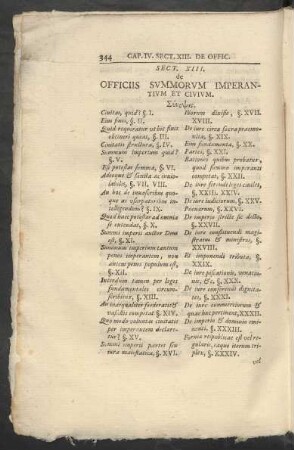 344 CAP. IV. SECT. XIII. DE OFFIC.
SECT. XIII.
de
OFFICIIS SVMMORVM IMPERAN-
TIVM ET CIVIVM.
Σύνοψις.
Civitas, quid? §. I.
Eius finis, §. II.
Quid requiratur ut hic finis
obtineri queat, §. III.
Civitatis structura, §. IV.
Summum imperium quid?
§. V.
Eſt poteſtas ſumma, §. VI.
Adeoque & ſancta ac invio-
labilis, §. VII. VIII.
An hoc de invaſoribus quo-
que ac uſurpatoribus in-
telligendum? §. IX.
Quid haec poteſtas ad omnia
ſe extendat, §. X.
Summi imperii auctor Deus
eſt, §. XI.
Summum imperium tantum
penes imperantem, non
etiam penes populum eſt,
§. XII.
Interdum tamen per leges
fundamentales circum-
ſcribitur, §. XIII.
An inaequaliter foederatis &
vaſallis competat §. XIV.
Quomodo voluntas civitatis
per imperantem declare-
tur? §. XV.
Summi imperii partes ſeu
iura maieſtatica, §. XVI.
Horum diviſio, §. XVII.
XVIII.
De iure circa ſacra praemo-
nita, §. XIX.
Eius fundamenta, §. XX.
Partes, §. XXI.
Rationes quibus probatur,
quod ſummo imperanti
competat, §. XXII.
De iure ferendi leges civiles,
§. XXIII. XXIV.
De iure iudiciorum, §. XXV.
Poenarum, §. XXVI.
De imperio ſtricte ſic dicto,
§. XXVII.
De iure conſtituendi magi-
ſtratus & miniſtros, §.
XXVIII.
Et imponendi tributa, §.
XXIX.
De iure paciſcendi, venatio-
nis, &c. §. XXX.
De iure conferendi dignita-
tes, §. XXXI.
De iure commerciorum &
quae huc pertinent, XXXII.
De imperio & dominio emi-
nenti, §. XXXIII.
Forma reipublicae eſt vel re-
gularis, eaque iterum tri-
plex, §. XXXIV.
vel